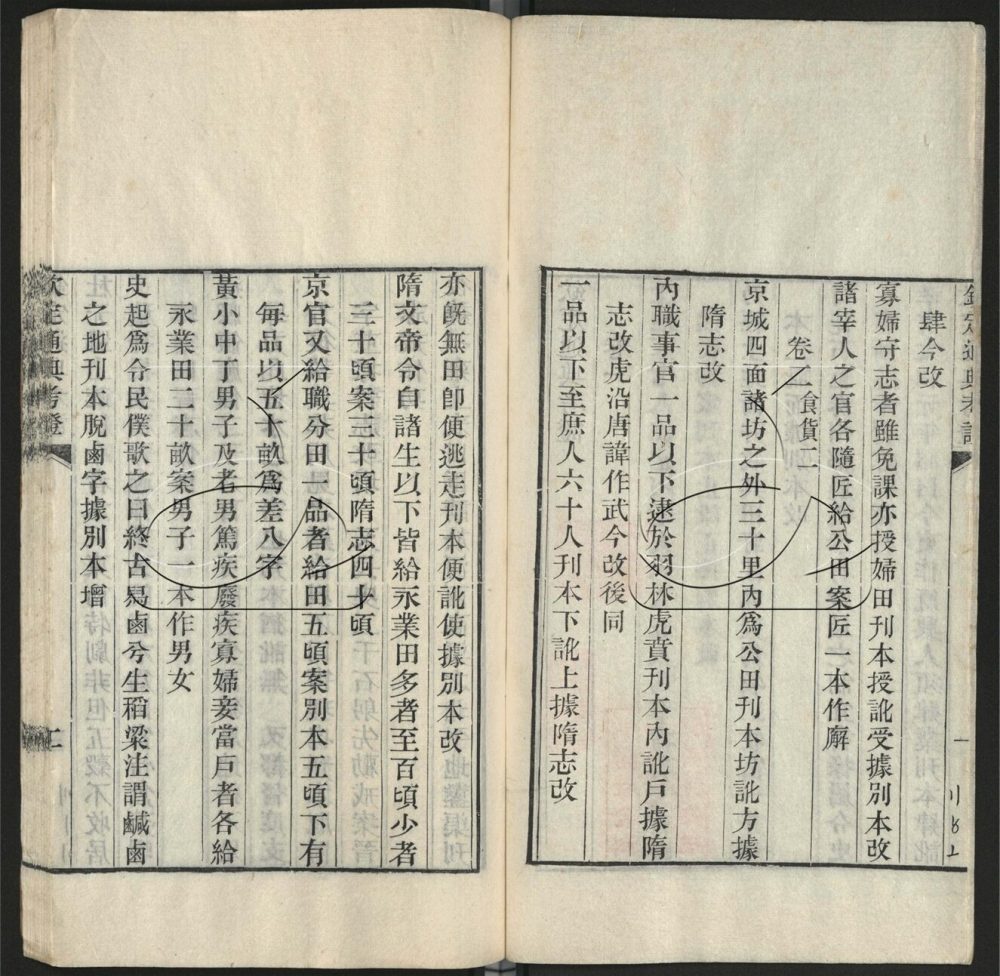 欽定通典考證
肆今改
寡婦守志者雖免課亦授婦田刊本授訛受據別本改
諸宰人之官各隨匠給公田案匠一本作廨
卷二食貨二
京城四面諸坊之外三十里內爲公田刊本坊訛方據
隋志改
內職事官一品以下逮於羽林虎賁刊本內訛戸據隋
志改虎沿唐諱作武今改後同
一品以下至庶人六十人刊本下訛上據隋志改
亦旣無田卽便逃走刊本便訛使據別本改
隋文帝令自諸生以下皆給永業田多者至百頃少者
三十頃案三十頃隋志四十頃
京官又給職分田一品者給田五頃案別本五頃下有
每品以五十畝爲差八字
黃小中丁男子及老男篤疾廢疾寡婦妾當戸者各給
永業田二十畝案男子一本作男女
史起爲令民僕歌之曰終古舄鹵兮生稻梁注謂鹹鹵
之地刊本脫鹵字據別本增
欽定通典考證
二